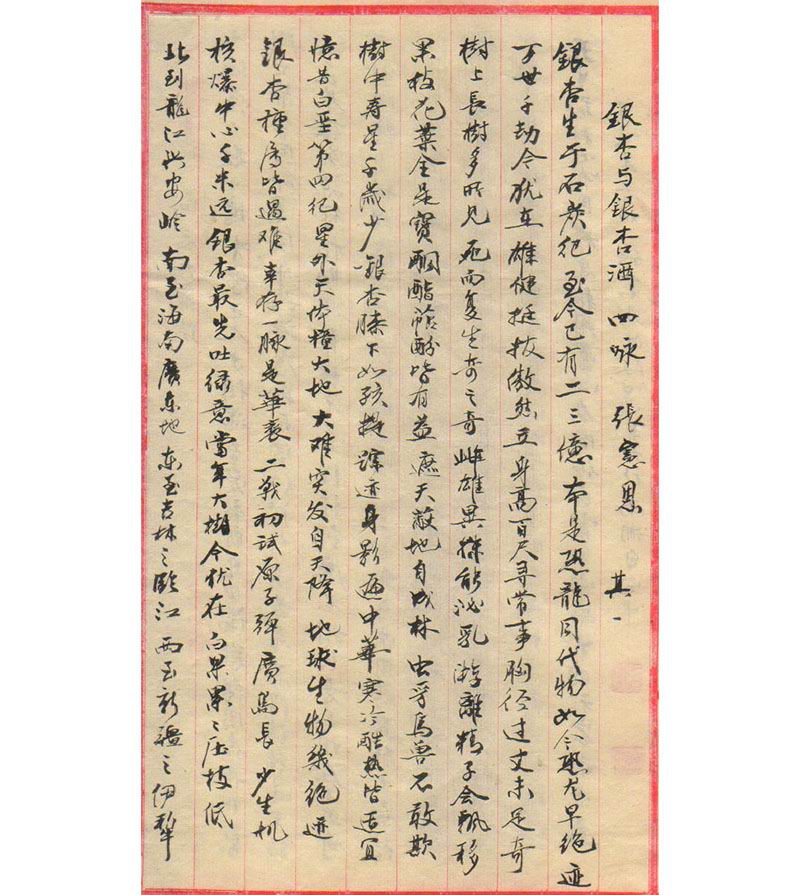 銀杏与銀杏酒 四咏 張憲恩 其一
銀杏生于石炭纪 至今已有二三億 本是恐龍同代物 如今恐龙早绝迹
万世千劫今犹在 雄健挺拔傲然立 身高百尺寻常事 胸径过丈未足奇
樹上長樹多所见 死而复生奇之奇 雌雄異株能泌乳 游離精子会飘移
果枝花葉全是寳 酮酯萜酚皆有益 遮天蔽地自成林 虫孚鸟兽不敢欺
樹中寿星千歲少 銀杏膝下如孩提 踪迹身影遍中華 寒冷酷热皆适宜
憶昔白垩第四纪 星外天体撞大地 大难突发自天降 地球生物幾绝迹
銀杏種属皆遇难 幸存一脉是華裔 二戰初试原子弹 廣島長 少生机
核爆中心千米远 銀杏最先吐绿意 當年大樹今犹在 白果累々压枝低
北到龍江兴安岭 南至海南廣东地 东至吉林之 江 西至新疆之伊犁